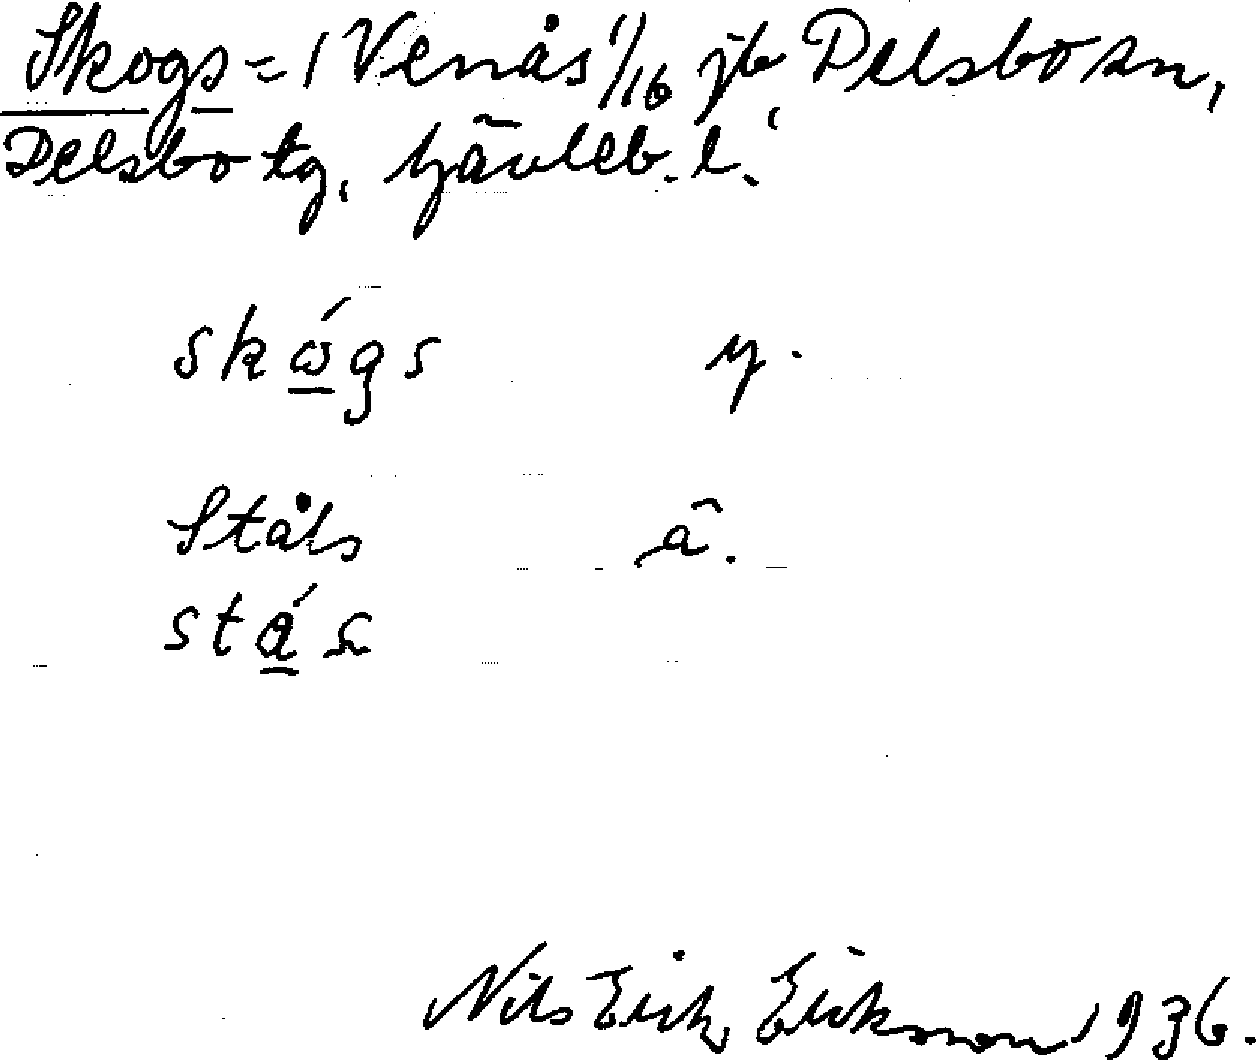 Skogs = 1 Venås 1/16 jb Delsbo sn,
Delsbo tg, Gävleb. l.
skógs y.
Ståls å.
stás
Nils Erik Erikson 1936.